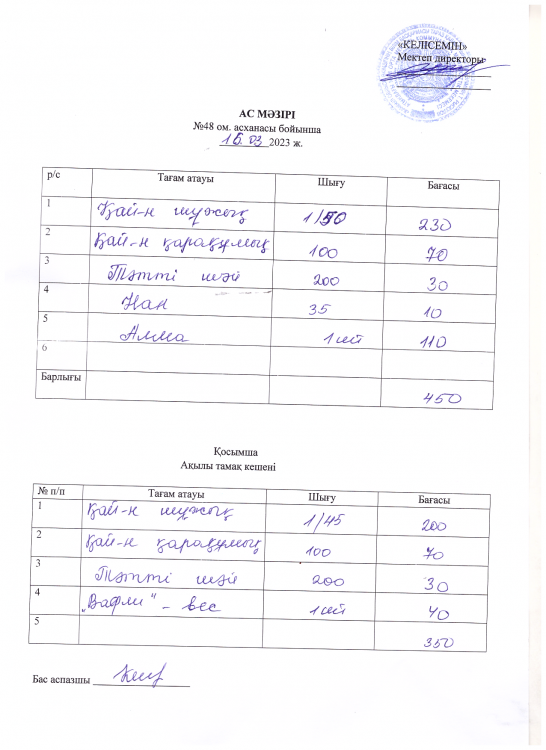 «КЕЛІСЕМІН»
Мектеп директоры
АС МӘЗІРІ
№48 ом. асханасы бойынша
16.03 2023 ж.
р/с Тағам атауы Шығу Бағасы
1 Қай-н шұжық 1/50 230
2 Қай-н қарақұмық 100 70
3 Тәтті шәй 200 30
4 Нан 35 10
5 Алма 1 шт 110
6
Барлығы 450
Қосымша
Ақылы тамақ кешені
№ п/п Тағам атауы Шығу Бағасы
1 Қай-н шұжық 1/45 200
2 Қай-н қарақұмық 100 70
3 Тәтті шәй 200 30
4 „Вафли" - вес 1 шт 40
5 350
Бас аспазшы